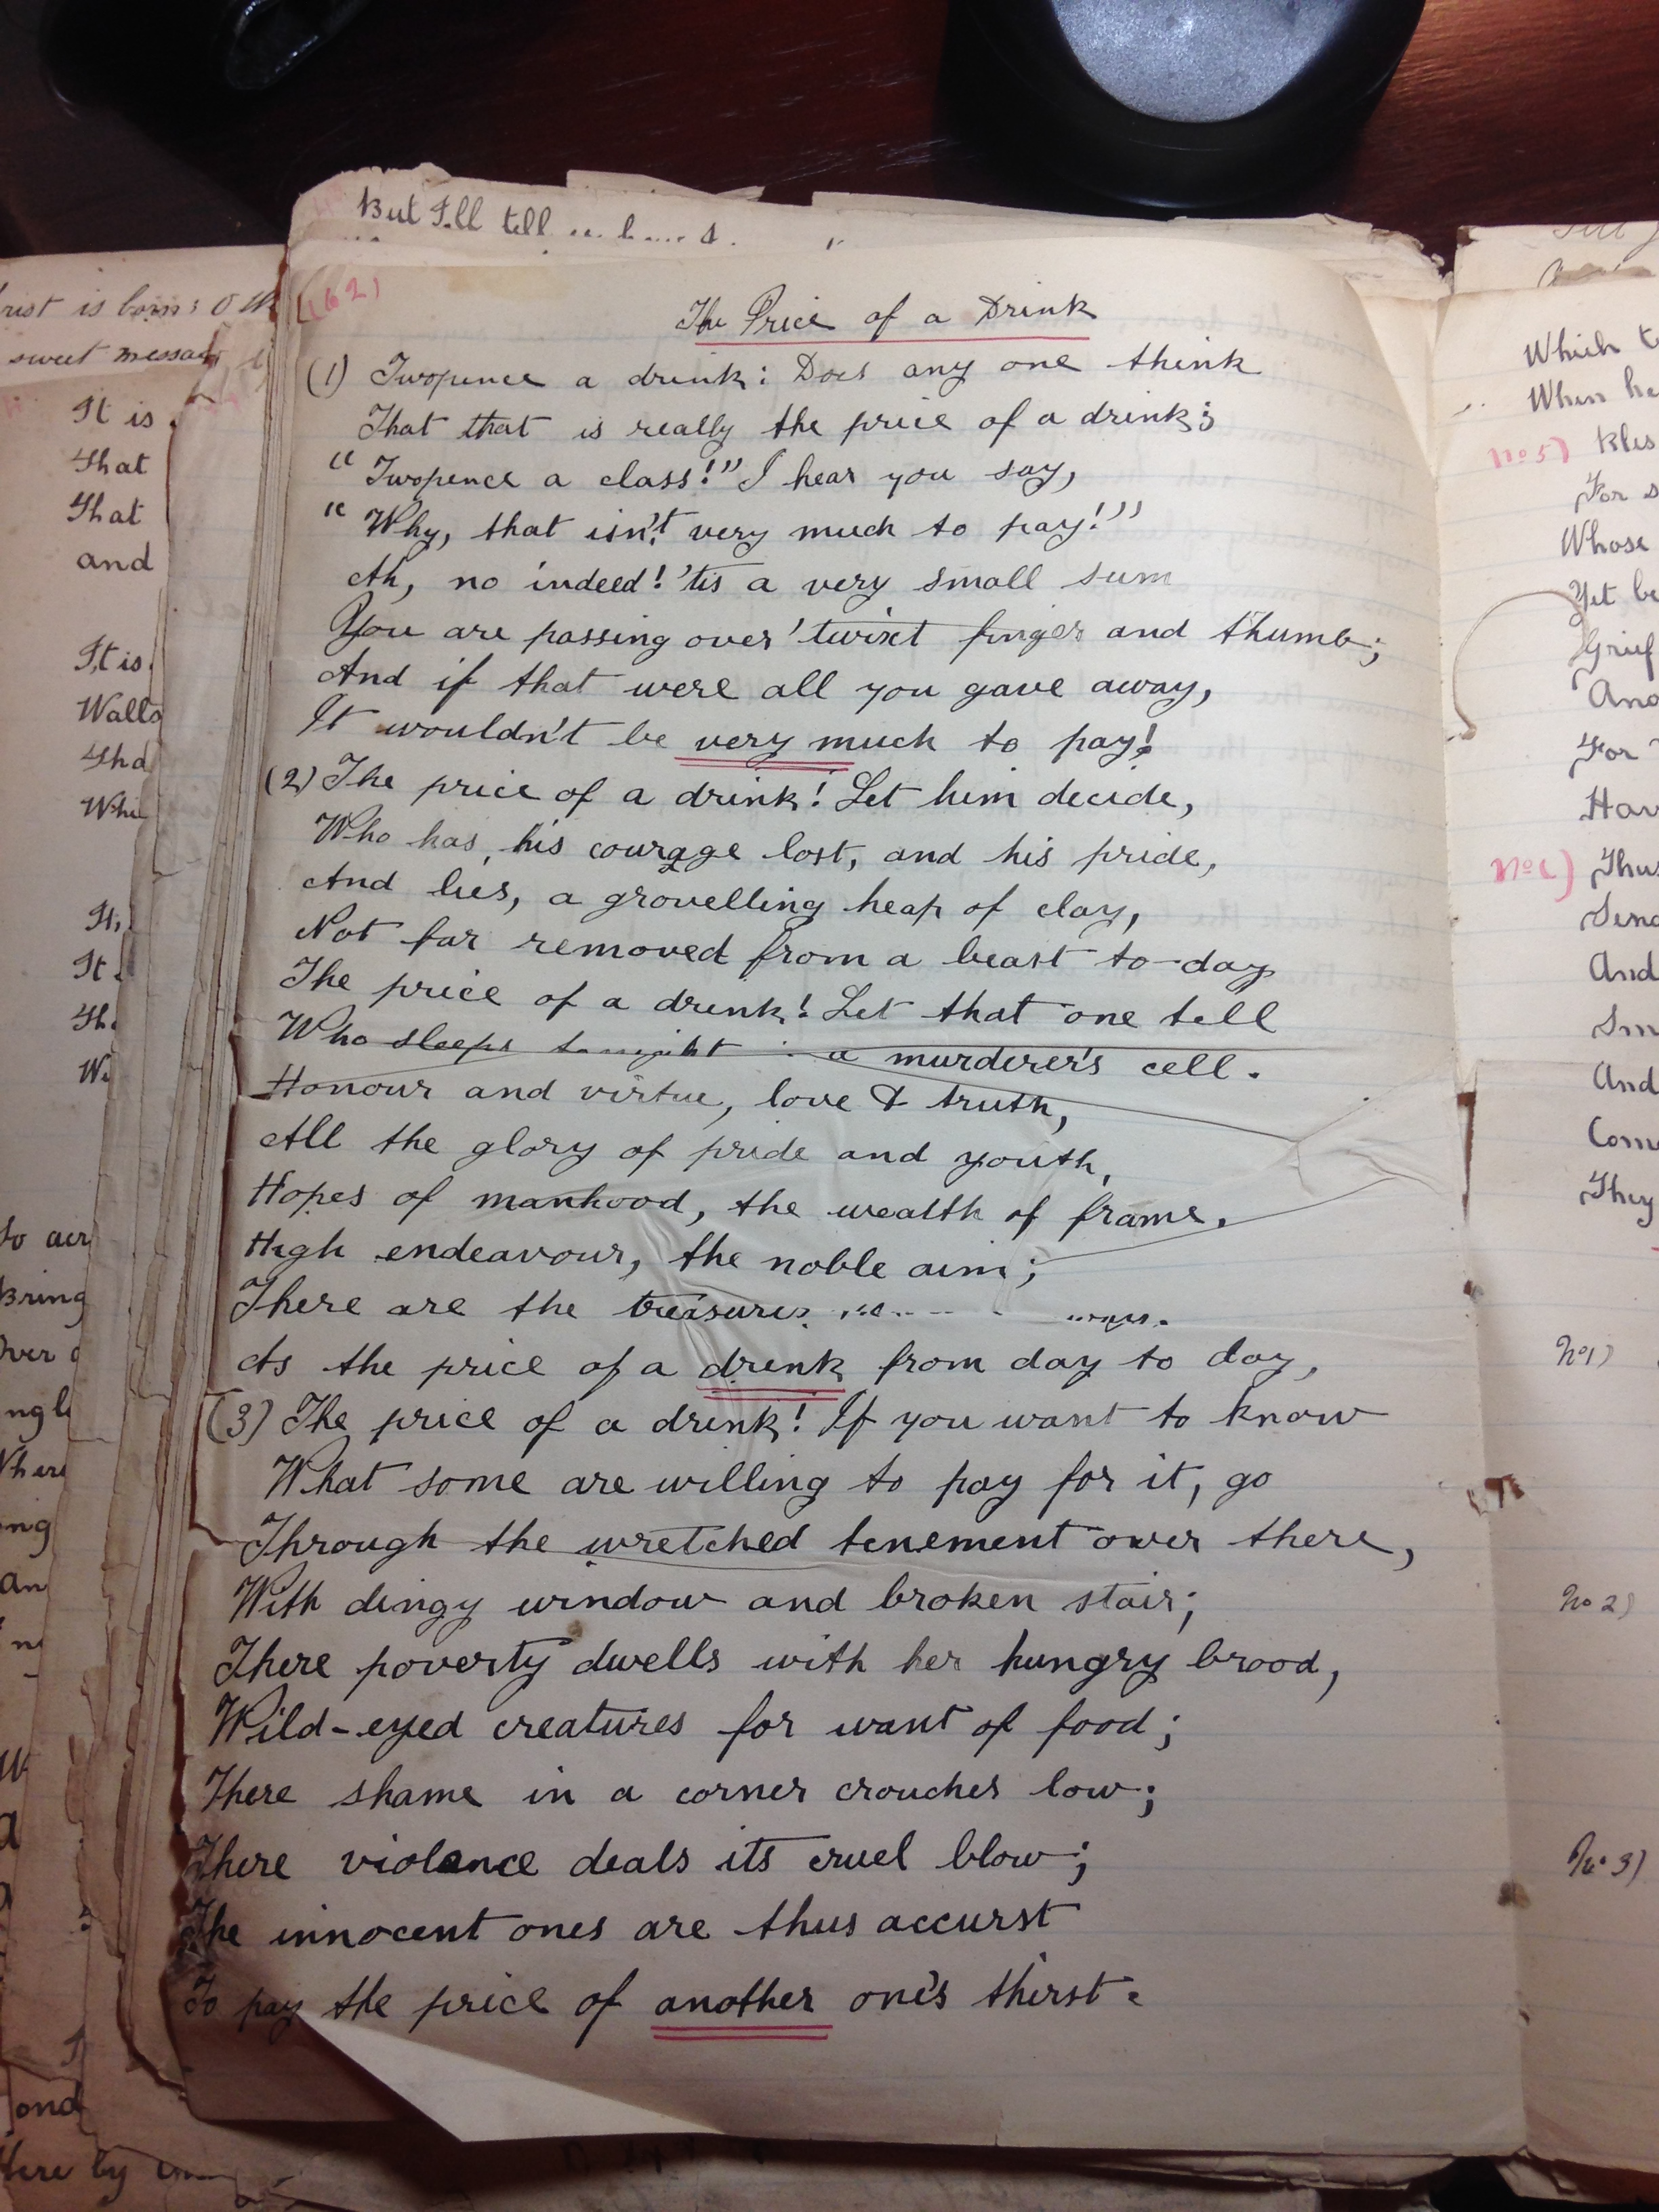 But I'll tell
(162)
The Price of a Drink
(1) Twopence a drink: Does any one think
That that is really the price of a drink;
"Twopence a class!" I hear you say,
"Why, that isn't very much to pay!"
Ah, no indeed! 'tis a very small sum
You are passing over 'twixt finger and thumb;
And if that were all you gave away,
It wouldn't be very much to pay!
(2) The price of a drink! Let him decide,
Who has, his courage lost, and his pride,
And lies, a grovelling heap of clay,
Not far removed from a beast to-day
The price of a drink! Let that one tell
Who sleeps tonight a murderer's cell.
Honour and virtue, love & truth,
All the glory of pride and youth,
Hopes of manhood, the wealth of frame,
High endeavour, the noble aim;
There are the treasures
As the price of a drink from day to day,
(3) The price of a drink! If you want to know
What some are willing to pay for it, go
Through the wretched tenement over there,
With dingy window and broken stair;
There poverty dwells with her hungry brood,
Wild-eyed creatures for want of food;
There shame in a corner crouches low;
There violence deals its cruel blow;
The innocent ones are thus accurst
To pay the price of another one's thirst.
rist is born: O
sweet
It is
That
That
and
It is
It
ond
Here by
Which
When he
No 5)
For s
Whose
Yet be
Grief
For
And
And
They
No 1)
No 2)
No 3)